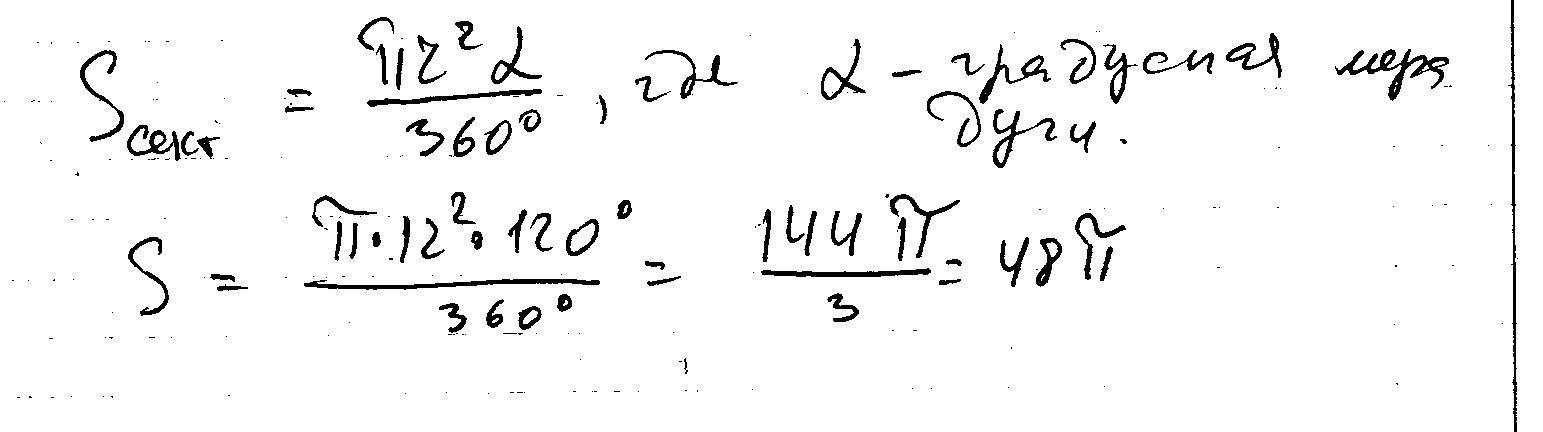 Sсект = πr²α / 360°, где α – градусная мера
дуги.
S = π·12²·120° / 360° = 144π / 3 = 48π